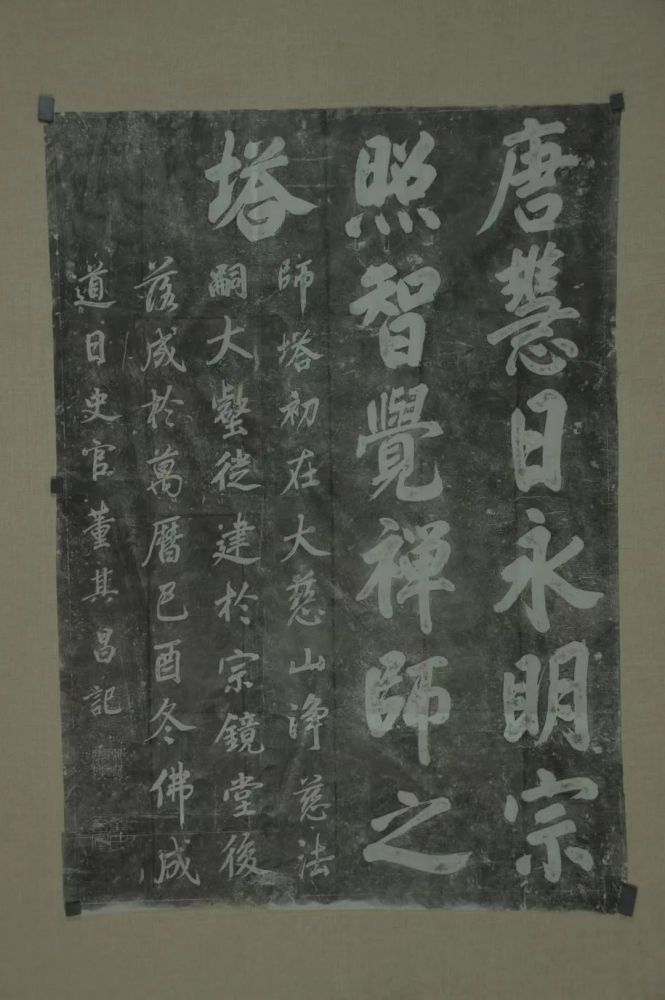 唐慧日永明宗
照智覺禪師之
塔
師塔初在大慈山淨慈法
嗣大壑徙建於宗鏡堂後
落成於萬曆己酉冬佛成
道日史官董其昌記